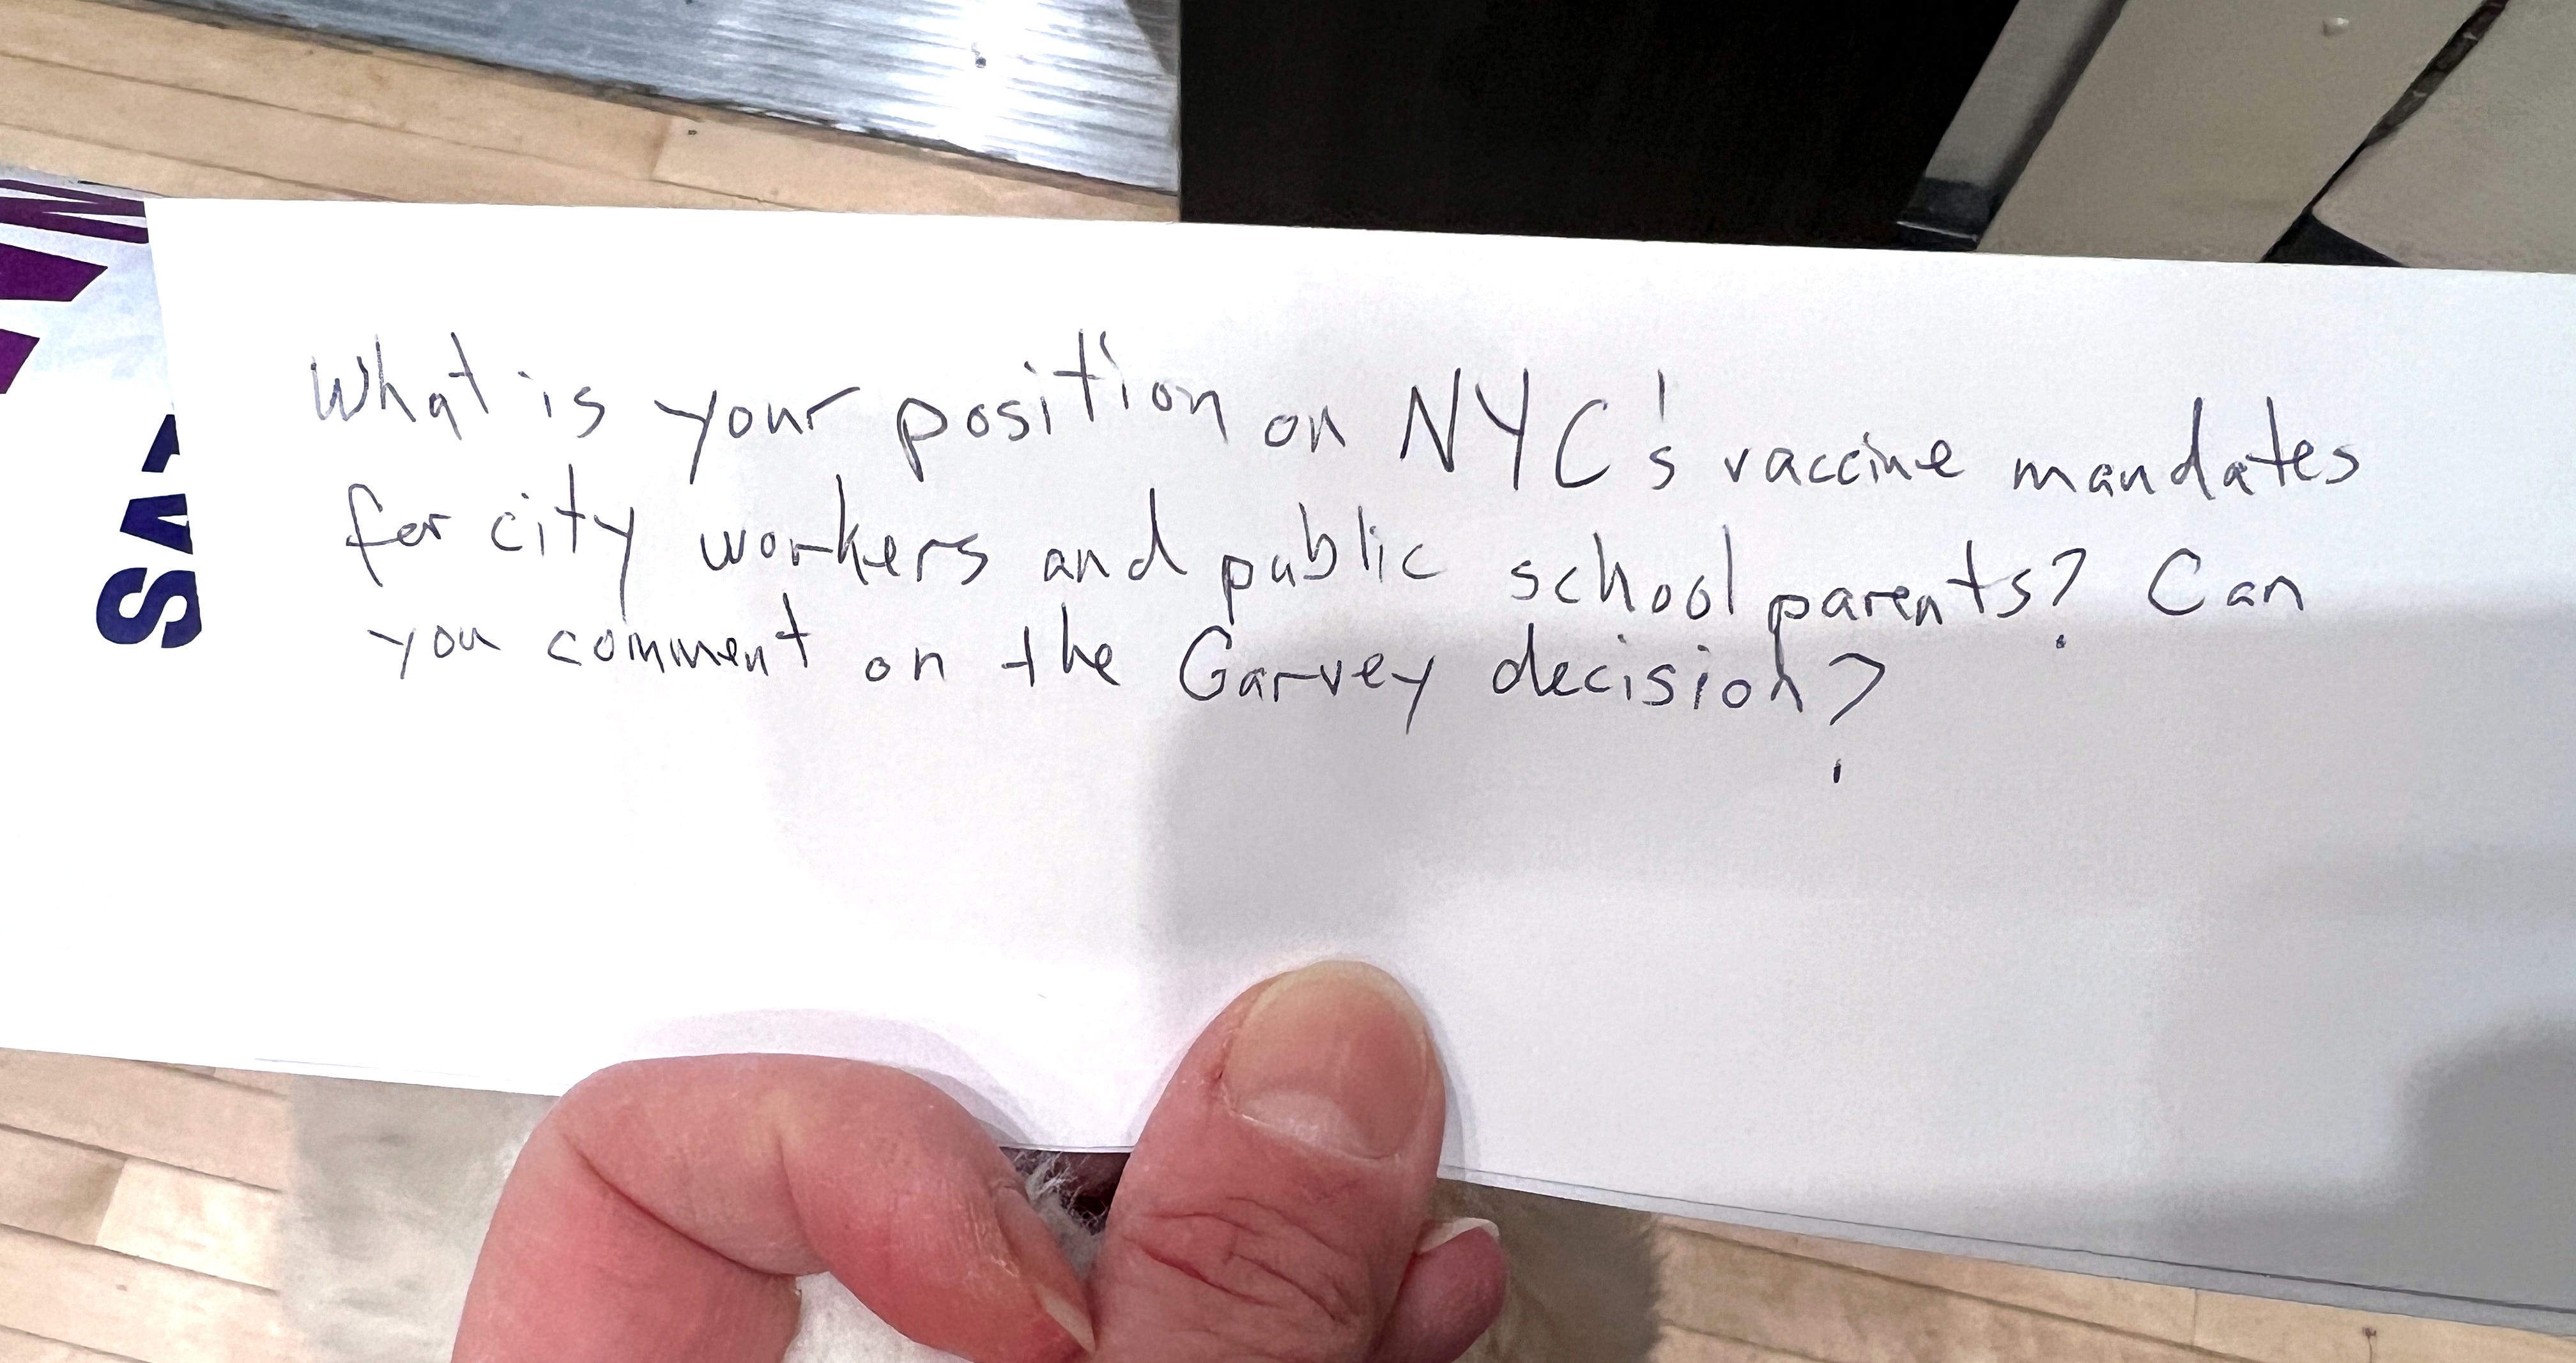 What is your position on NYC's vaccine mandates
for city workers and public school parents? Can
you comment on the Garvey decision?